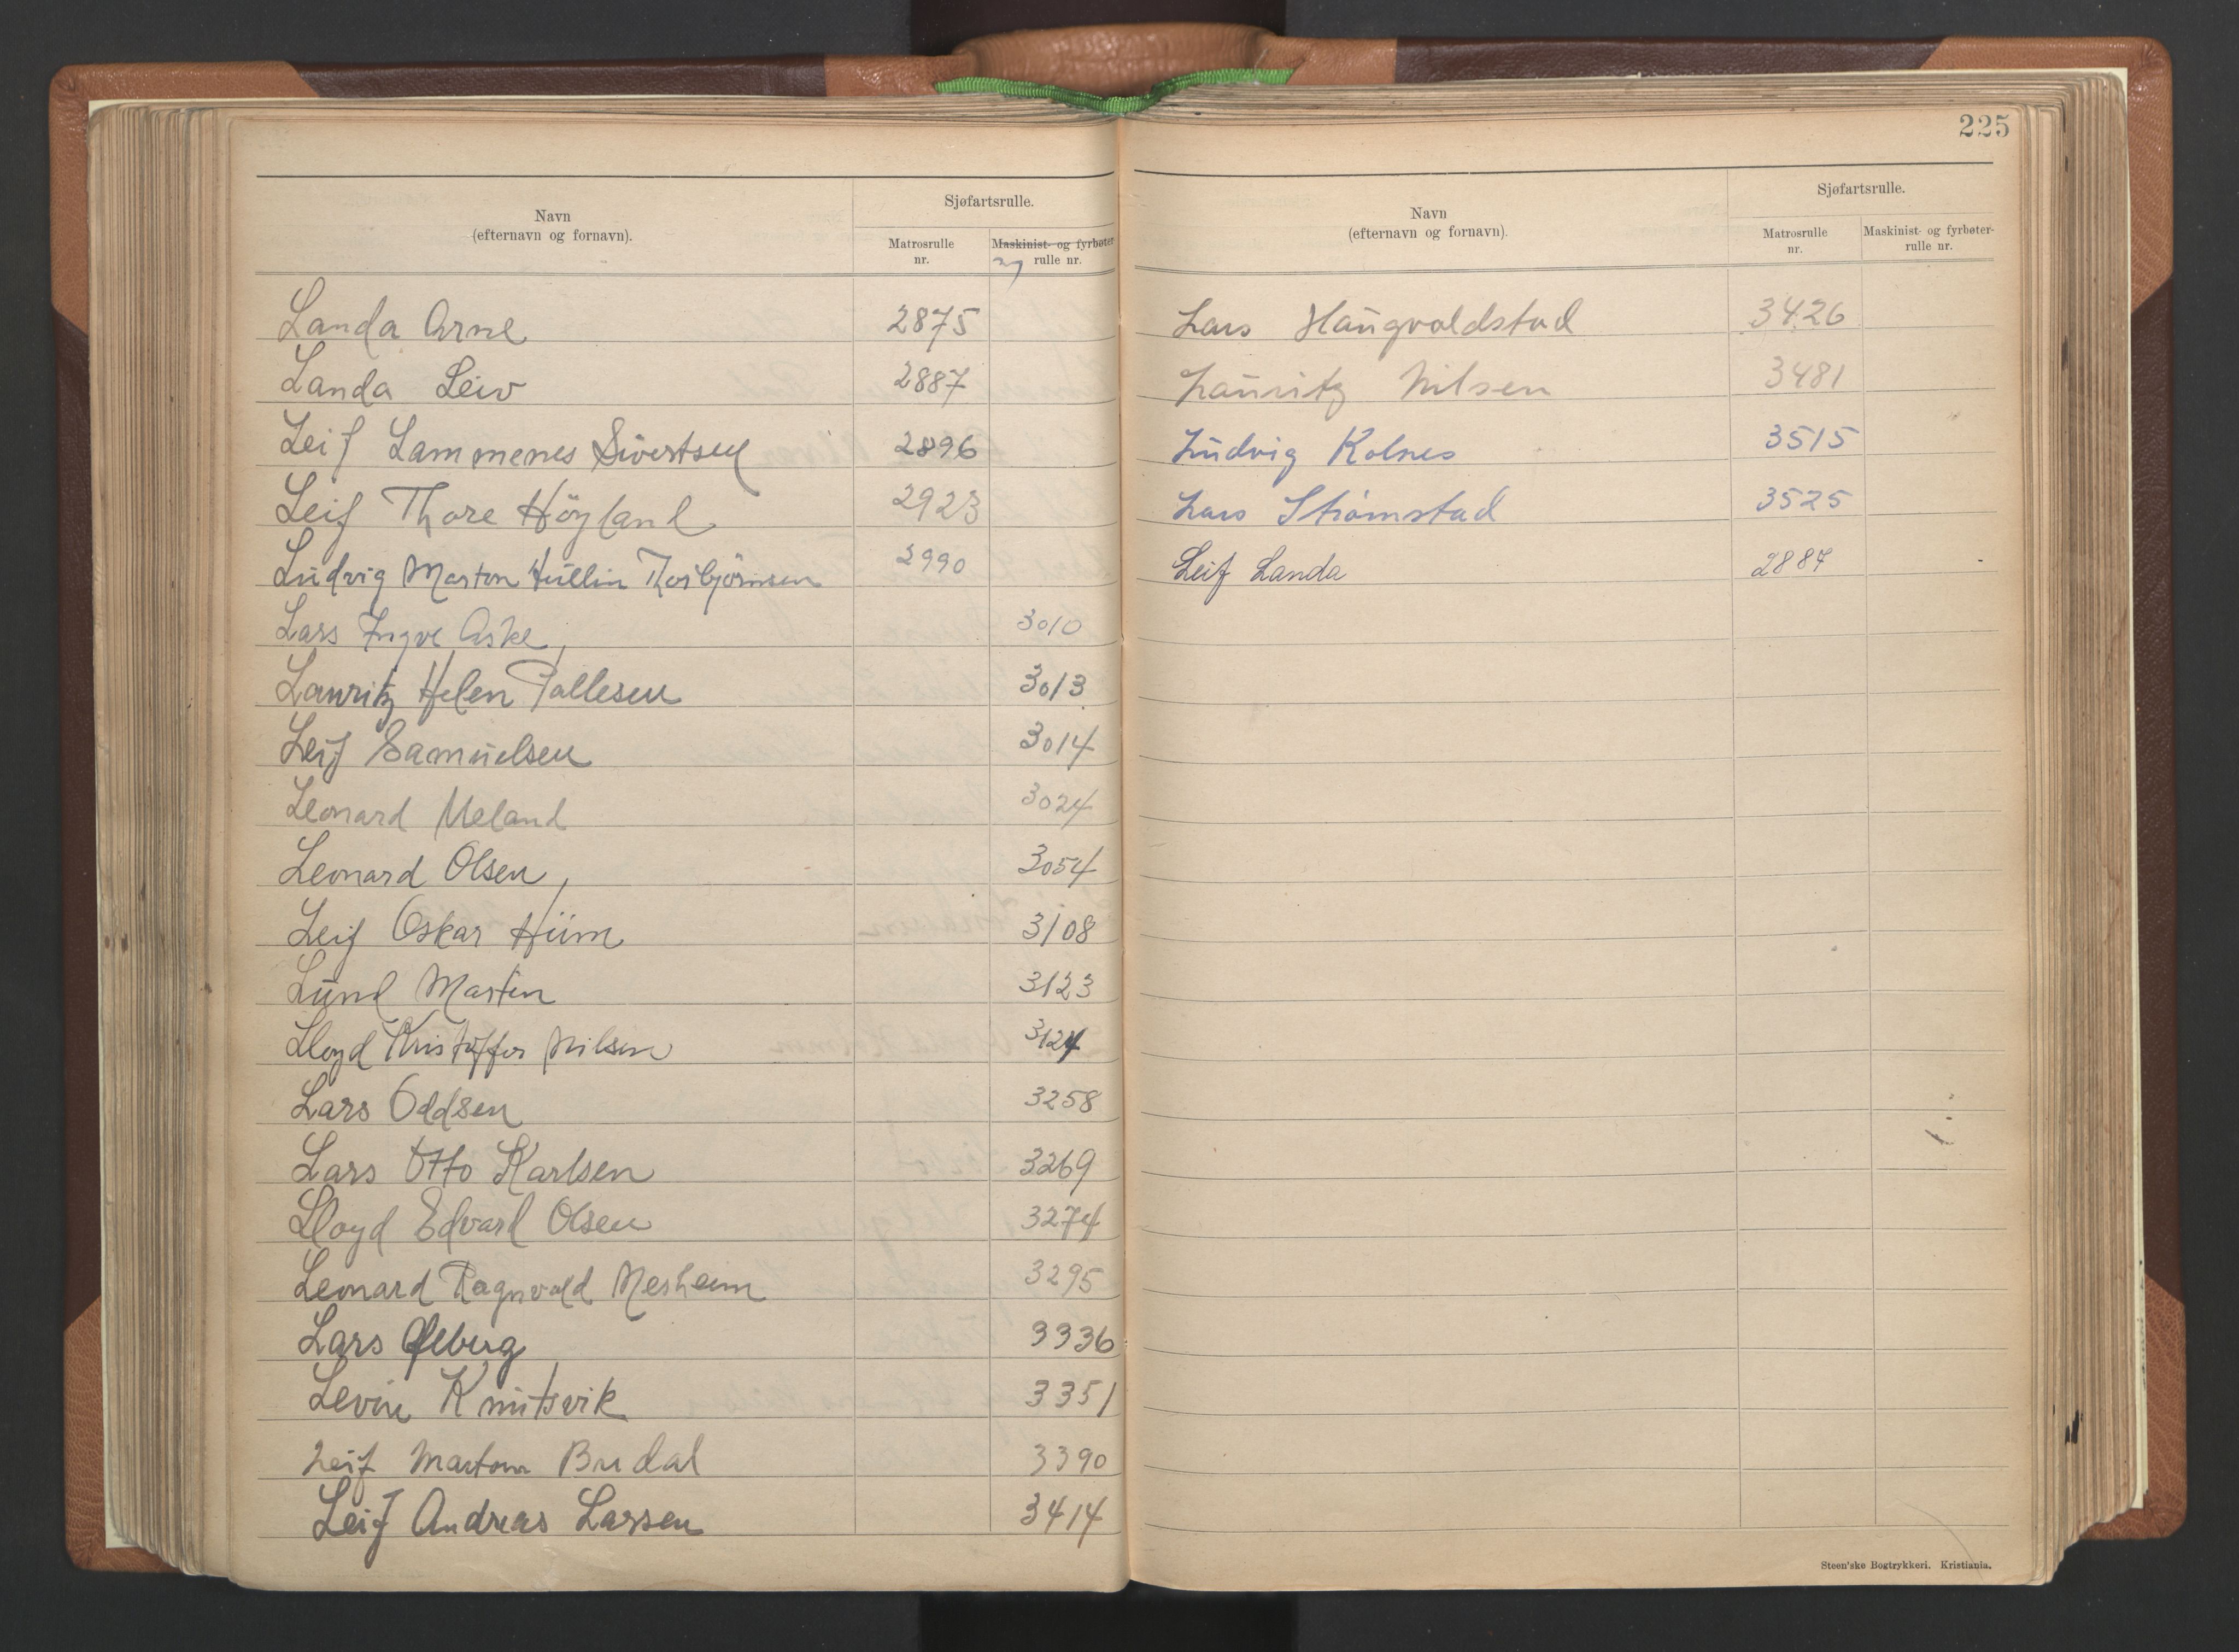 Navn
(efternavn og fornavn).
Sjøfartsrulle.
Matrosrulle
nr.
Maskinist- og fyrbøter
ny rulle nr.
Landa Arne 2875
Landa Leiv 2887
Leif Lammenes Sivertsen 2896
Leif Thore Höyland 2923
Ludvig Marton Hullin Thorbjörnsen 2990
Lars Ingve Aske, 3010
Lauritz Helen Pallesen 3013
Leif Samuelsen 3014
Leonard Meland 3024
Leonard Olsen, 3054
Leif Oskar Hiim 3108
Lund Martin 3123
Lloyd Kristoffer Nilsen 3124
Lars Oddsen 3258
Lars Otto Karlsen 3269
Lloyd Edvard Olsen 3274
Leonard Ragnvald Nesheim 3295
Lars 3336
Levin Knutsvik 3351
Leif Marton Brudal 3390
Leif Andreas Larsen 3414
225
Navn
(efternavn og fornavn).
Sjøfartsrulle.
Matrosrulle
nr.
Maskinist- og fyrbøter-
rulle nr.
Lars Haugvaldstad 3426
Lauritz Nilsen 3481
Ludvig Kolnes 3515
Lars Strømstad 3525
Leif Landa 2887
Steen'ske Bogtrykkeri. Kristiania.